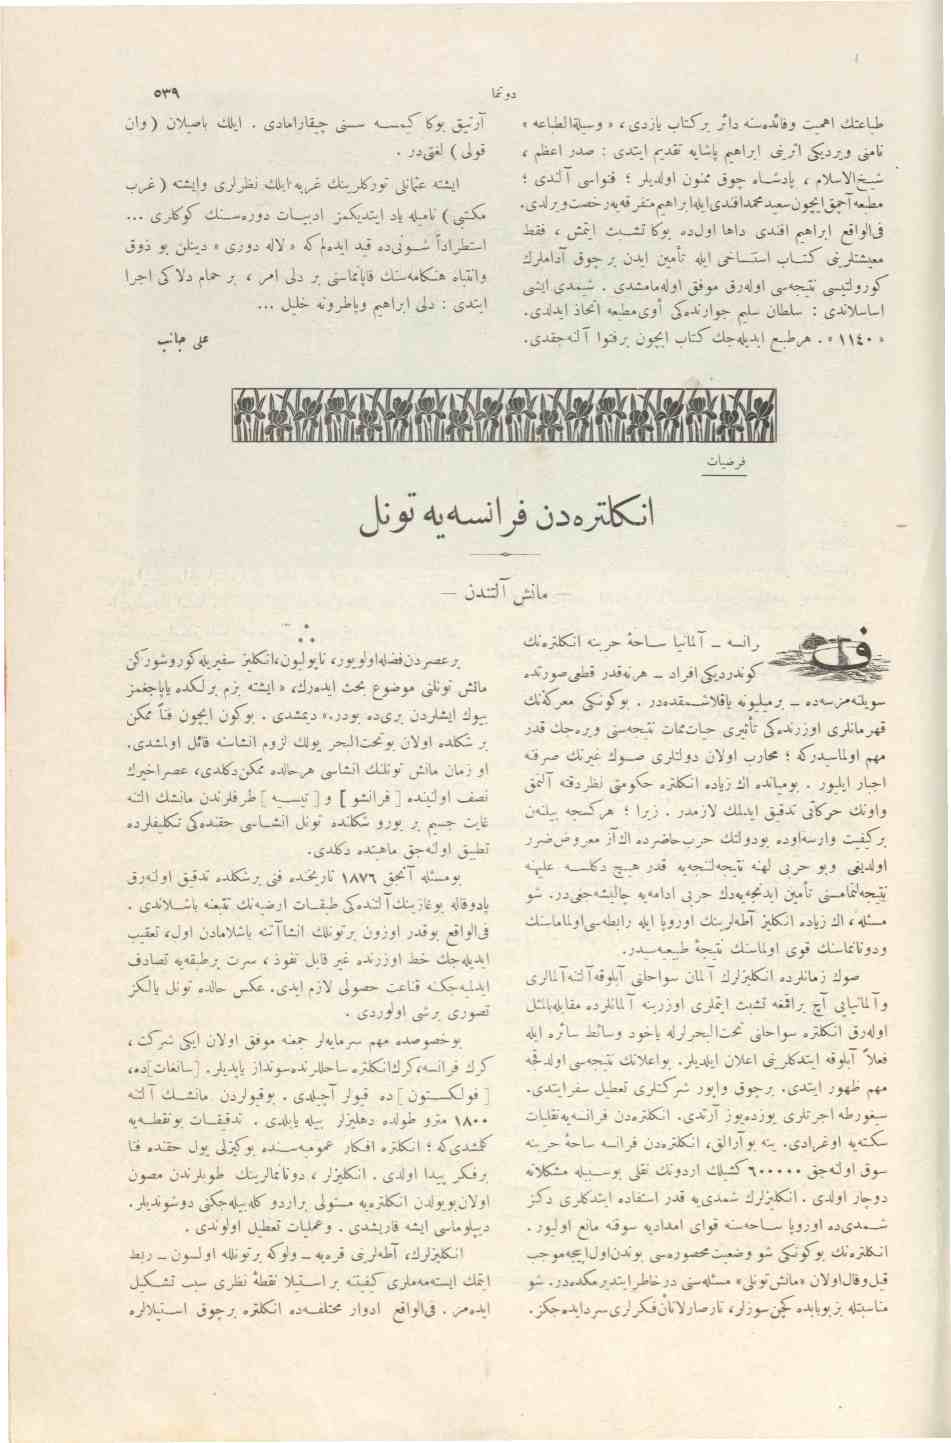 دوننما
٥٣٩
طباعتك اهميت وفائده‌سنه دائر بركتاب يازدى، « وسيلة‌الطباعه »
نامنى ويرديكى اثرينى ابراهيم پاشايه تقديم ايتدى : صدر اعظم ،
شيخ‌الاسلام ، پادشاه چوق ممنون اولديلر ؛ فتواسى آلندى ؛
مطبعه آچمق ايچون سعيد محمد افندى ايله ابراهيم متفرقه‌يه رخصت ويرلدى.
فى‌الواقع ابراهيم افندى داها اول‌ده بوكا تشبث ايتمش ، فقط
معيشتلرينى كتاب استنساخى ايله تأمين ايدن برچوق آداملرك
كورولتيسى نتيجه‌سى اوله‌رق موفق اوله‌مامشدى . شيمدى ايشى
اساسلاندى : سلطان سليم جوارنده‌كى أوى مطبعه اتخاذ ايدلدى.
« ١١٤٠ » . هر طبع ايديله‌جك كتاب ايچون برفتوا آلنه‌جقدى.
آرتيق بوكا كيمسه سسنى چيقارامادى . ايلك باصيلان ( وان
قولى ) لغتى‌در .
ايشته عثمانلى توركلرينك غربه ايلك نظرلرى وايشته ( غرب
مكتبى ) ناميله ياد ايتديكمز ادبيات دوره‌سنك كوكلرى ...
استطراداً شونى‌ده قيد ايده‌لم كه « لاله دورى » دينلن بو ذوق
وانتباه هنكامه‌سنك قاپانماسنى بر دلى امر ، بر حمام دلاكى اجرا
ايتدى : دلى ابراهيم وپاطرونه خليل ...
على جانب
فرضيات
انكلتره‌دن فرانسه‌يه تونل
— مانش آلتندن —
فرانسه ـ آلمانيا ساحهٔ حربنه انكلتره‌نك
كوندرديكى افراد ـ هرنه‌قدر قطعى صورتده
سويلنه‌مزسه‌ده ـ برميليونه ياقلاشمقده‌در . بوكونكى معركه‌نك
قهرمانلرى اوزرنده‌كى تأثيرى حيات‌ممات نتيجه‌سنى ويره‌جك قدر
مهم اولماسيدركه ؛ محارب اولان دولتلرى صوك غيرتك صرفنه
اجبار ايليور . بوميانده اك زياده انكلتره حكومتى نظر دقته آلنمق
واونك حركاتى تدقيق ايدلمك لازمدر . زيرا ؛ هركسجه بيلنه‌ن
بركيفيت وارسه‌اوده بودولتك حرب حاضرده اك‌آز معروض ضرر
اولديغى وبو حربى لهنه نتيجه‌لنجه‌يه قدر هيچ دكلسه عليهنه
نتيجه‌لنمامسنى تأمين ايدنجه‌يه‌دك حربى ادامه‌يه چاليشه‌جغى‌در. شو
مسئله، اك زياده انكليز آطه‌لرينك اوروپا ايله رابطه‌سى اولماماسنك
ودونانماسنك قوى اولماسنك نتيجهٔ طبيعيه‌سيدر.
صوك زمانلرده انكليزلرك آلمان سواحلنى آبلوقه آلتنه آلمالرى
وآلمانيايى آچ براقمغه تشبث ايتملرى اوزرينه آلمانلرده مقابله‌بالمثل
اوله‌رق انكلتره سواحلنى تحت‌البحرلرله ياخود وسائط سائره ايله
فعلاً آبلوقه ايتدكلرينى اعلان ايلديلر. بواعلانك نتيجه‌سى اولدقجه
مهم ظهور ايتدى. برچوق واپور شركتلرى تعطيل سفر ايتدى.
سيغورطه اجرتلرى يوزده‌يوز آرتدى. انكلتره‌دن فرانسه‌يه نقليات
سكته‌يه اوغرادى. ينه بوآرالق، انكلتره‌دن فرانسه ساحهٔ حربنه
سوق اولنه‌جق ٦٠٠٠٠٠ كشيلك اردونك نقلى بوسببله مشكلاته
دوچار اولدى. انكليزلرك شمدى‌يه قدر استفاده ايتدكلرى دكز
شمدى‌ده اوروپا ساحه‌سنه قواى امداديه سوقنه مانع اوليور.
انكلتره‌نك بوكونكى شو وضعيت محصوره‌سى بوندن اول ايچه‌موجب
قيل‌وقال اولان «مانش تونلى» مسئله‌سنى درخاطر ايتديرمكده‌در. شو
مناسبتله بز بوبابده كچن سوزلر، فكرلرى سرد ايده‌جكز.
برعصردن فضله اولويور، ناپوليون، انكليز سفيريله كوروشوركن
مانش تونلنى موضوع بحث ايده‌رك، « ايشته بزم برلكده ياپاجغمز
بيوك ايشلردن برى‌ده بودر.» ديمشدى . بوكون ايچون فناً ممكن
بر شكلده اولان بوتحت‌البحر يولك لزوم انشاسنه قائل اولمشدى.
او زمان مانش تونلنك انشاسى هرحالده ممكن‌دكلدى، عصر اخيرك
نصف اولينده [ فرانشو ] و [ تيسه ] طرفلرندن مانشك التنه
غايت جسيم بر بورو شكلنده تونل انشاسى حقنده‌كى تكليفلرده
تطبيق اولنه‌جق ماهيتده دكلدى.
بومسئله آنجق ١٨٧٦ تاريخنده فنى برشكلده تدقيق اولنه‌رق
پادوقاله بوغازينك آلتنده‌كى طبقات ارضيه‌نك تتبعنه باشلاندى .
فى‌الواقع بوقدر اوزون برتونلك انشاآتنه باشلامادن اول، تعقيب
ايديله‌جك خط اوزرنده غير قابل نفوذ ، سرت برطبقه‌يه تصادف
ايدلميه‌جكنه قناعت حصولى لازم ايدى. عكس حالده تونل يالكز
تصورى برشى اولوردى .
بوخصوصده مهم سرمايه‌لر جمعنه موفق اولان ايكى شركت ،
كرك فرانسه، كرك انكلتره ساحللرنده سونداژ ياپديلر. [سانغات]ده،
[ فولكستون ] ده قيولر آچيلدى . بوقيولردن مانشك آلتنه
١٨٠٠ مترو طولده دهليزلر بيله ياپلدى . تدقيقات بونقطه‌يه
كلمشدى‌كه ؛ انكلتره افكار عموميه‌سنده بوكيزلى يول حقنده فنا
برفكر پيدا اولدى . انكليزلر ، دونانمالرينك طوپلرندن مصون
اولان بويولدن انكلتره‌يه مستولى براردو كله‌بيله‌جكنى دوشونديلر.
ديپلوماسى ايشه قاريشدى . وعمليات تعطيل اولوندى .
انكليزلرك، آطه‌لرينى قره‌يه ـ ولوكه برتونلله اولسون ـ ربط
ايتمك ايسته‌مه‌ملرى كيفيتنه بر استيلا نقطهٔ نظرى سبب تشكيل
ايده‌مز . فى‌الواقع ادوار مختلفه‌ده انكلتره برچوق استيلالره